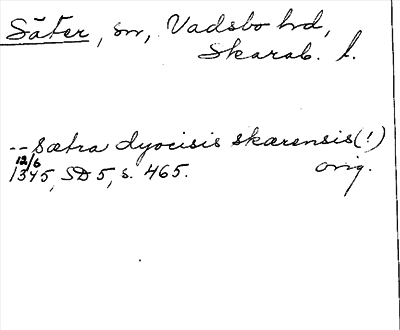 Säter, sn, Vadsbo hd,
Skarab. l.
-- Sætra dyocisis skarensis(!)
12/6 1345, SD 5, s. 465. orig.